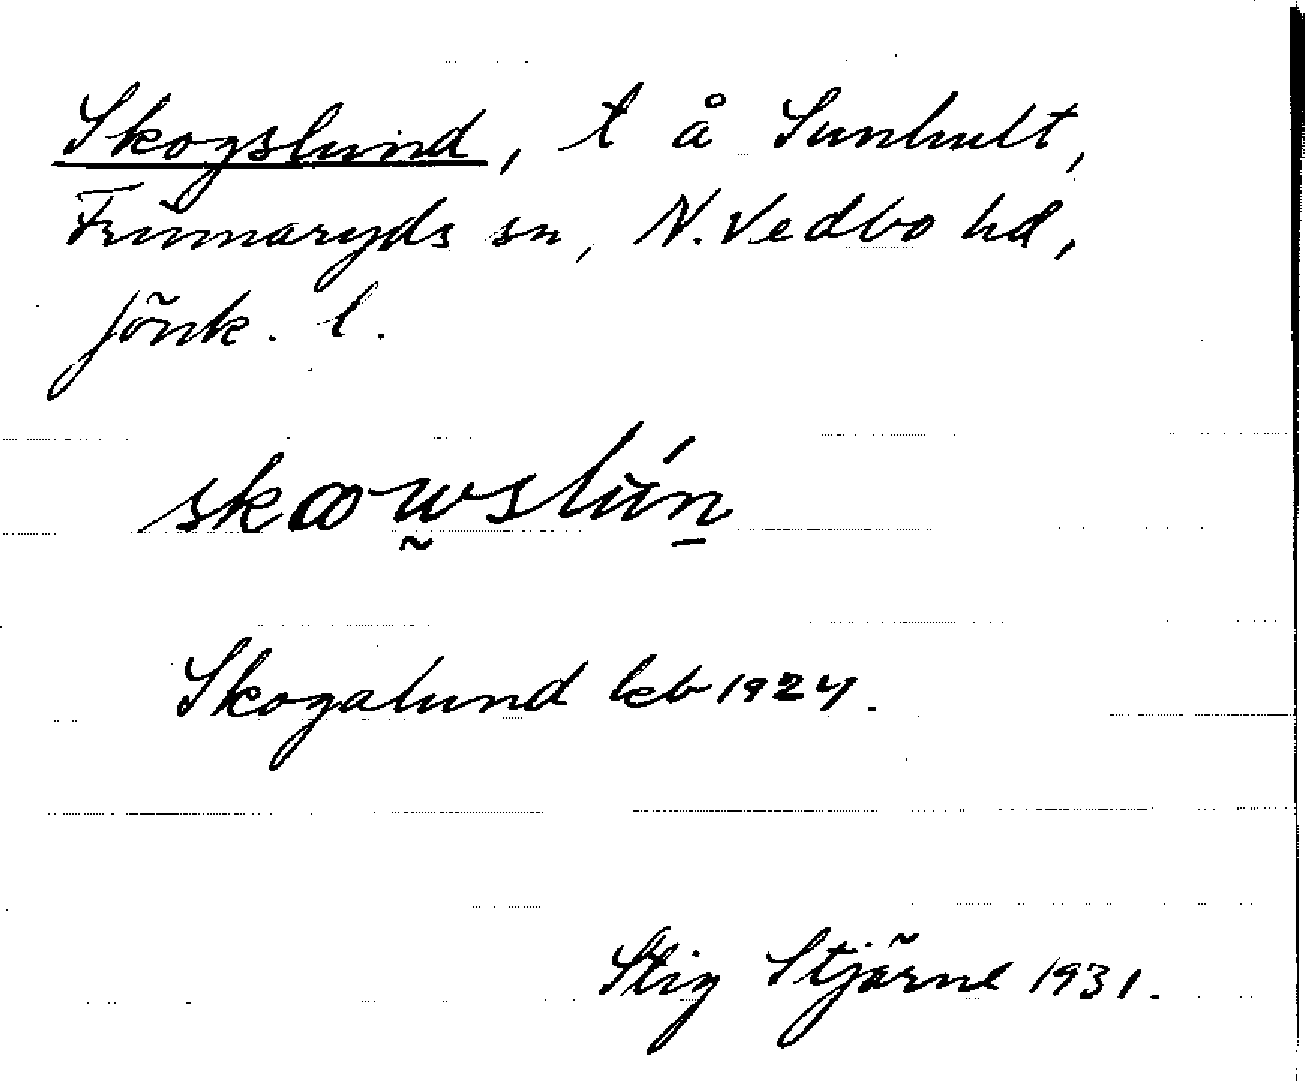 Skogslund, t å Sunhult,
Frinnaryds sn, N. Vedbo hd,
Jönk. l.
skꝏw̰slún̲
Skogalund lkb 1924.
Stig Stjärne 1931.